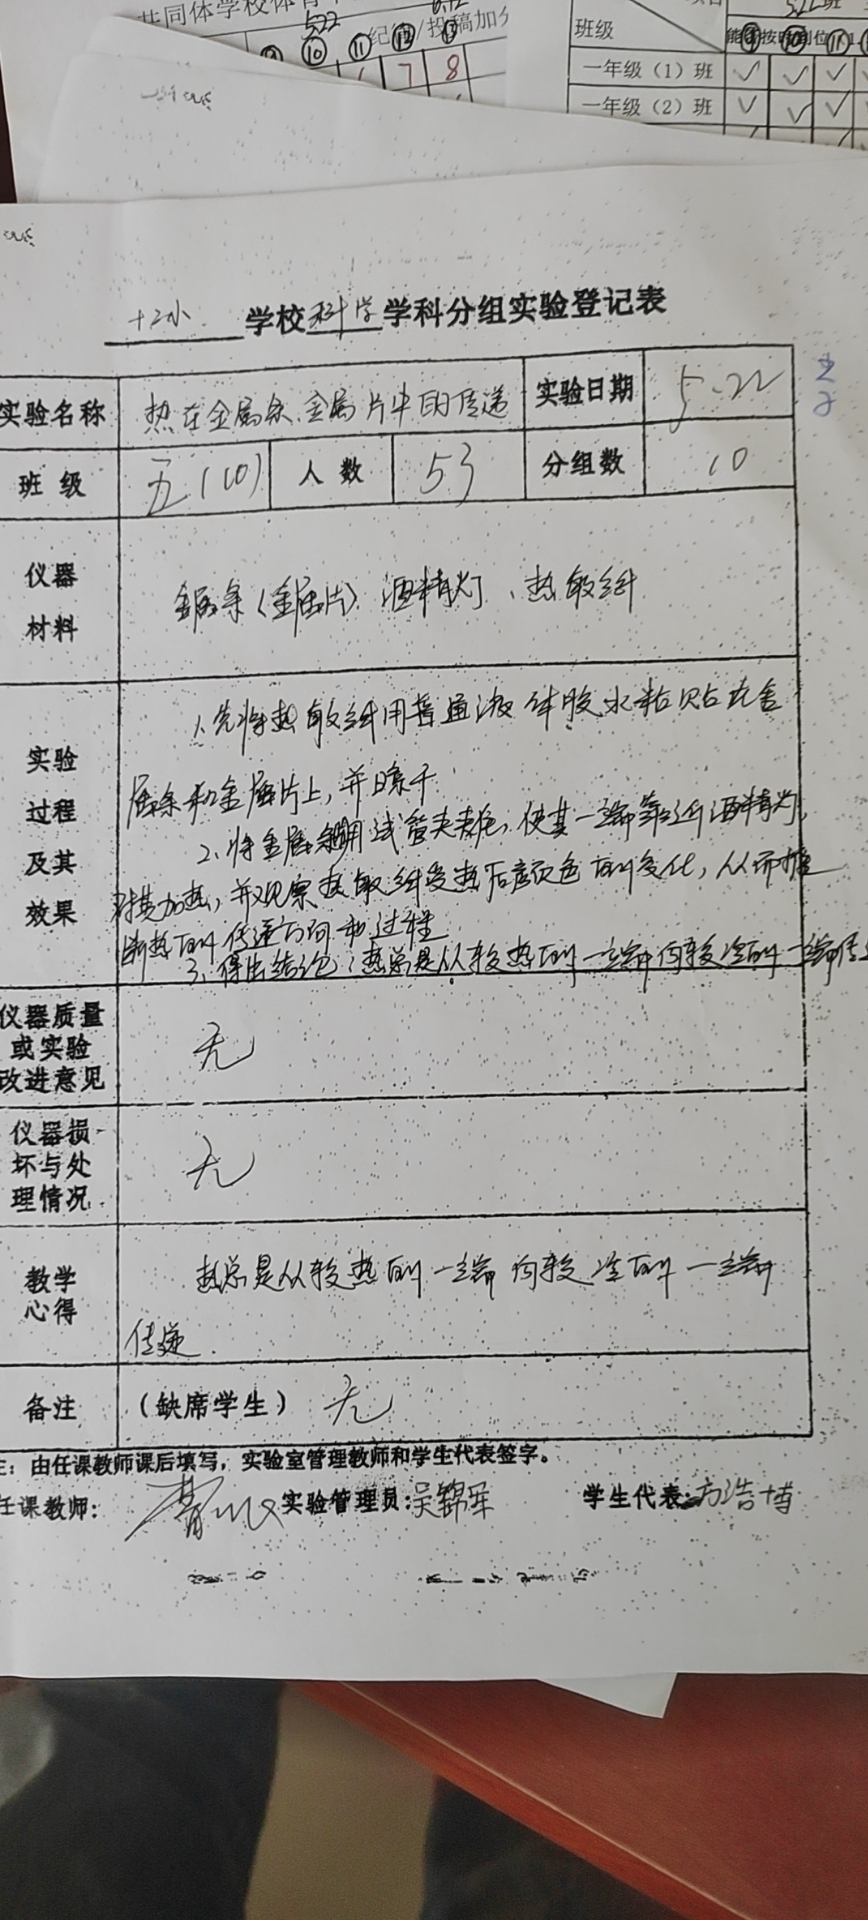 共同体学校体育
5.22
纪 /投稿加分
⑨ ⑩ ⑪ ⑫ ⑬
7 8
5.22
班级
能按时到位
⑨ ⑩ ⑪
一年级（1）班 ✓ ✓ ✓
一年级（2）班 ✓ ✓ ✓
十二小 学校 科学 学科分组实验登记表
实验名称 热在金属条、金属片中的传递 实验日期 5.22
班 级 五(10) 人 数 53 分组数 10
仪器
材料
金属条(金属片) 酒精灯、热敏纸
实验
过程
及其
效果
1、先将热敏纸用普通液体胶水粘贴在金
属条和金属片上，并晾干
2、将金属条用试管夹夹住，使其一端靠近酒精灯，
对其加热，并观察热敏纸受热后颜色的变化，从而推
断热的传递方向和过程
3、得出结论：热总是从较热的一端向较冷的一端传
仪器质量
或实验
改进意见
无
仪器损
坏与处
理情况
无
教学
心得
热总是从较热的一端向较冷的一端
传递
备注 （缺席学生） 无
注：由任课教师课后填写，实验室管理教师和学生代表签字。
任课教师： 实验管理员：吴锦军 学生代表：方浩博